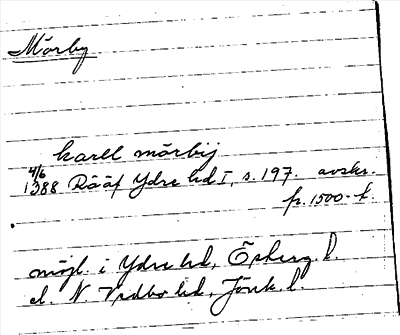 Mörby
karll mörbij
4/6
1388 Rääf Ydre hd I, s. 197. avskr.
fr. 1500-t.
möjl. i Ydre hd, Österg. l.
el. N. Vedbo hd, Jönk. l.